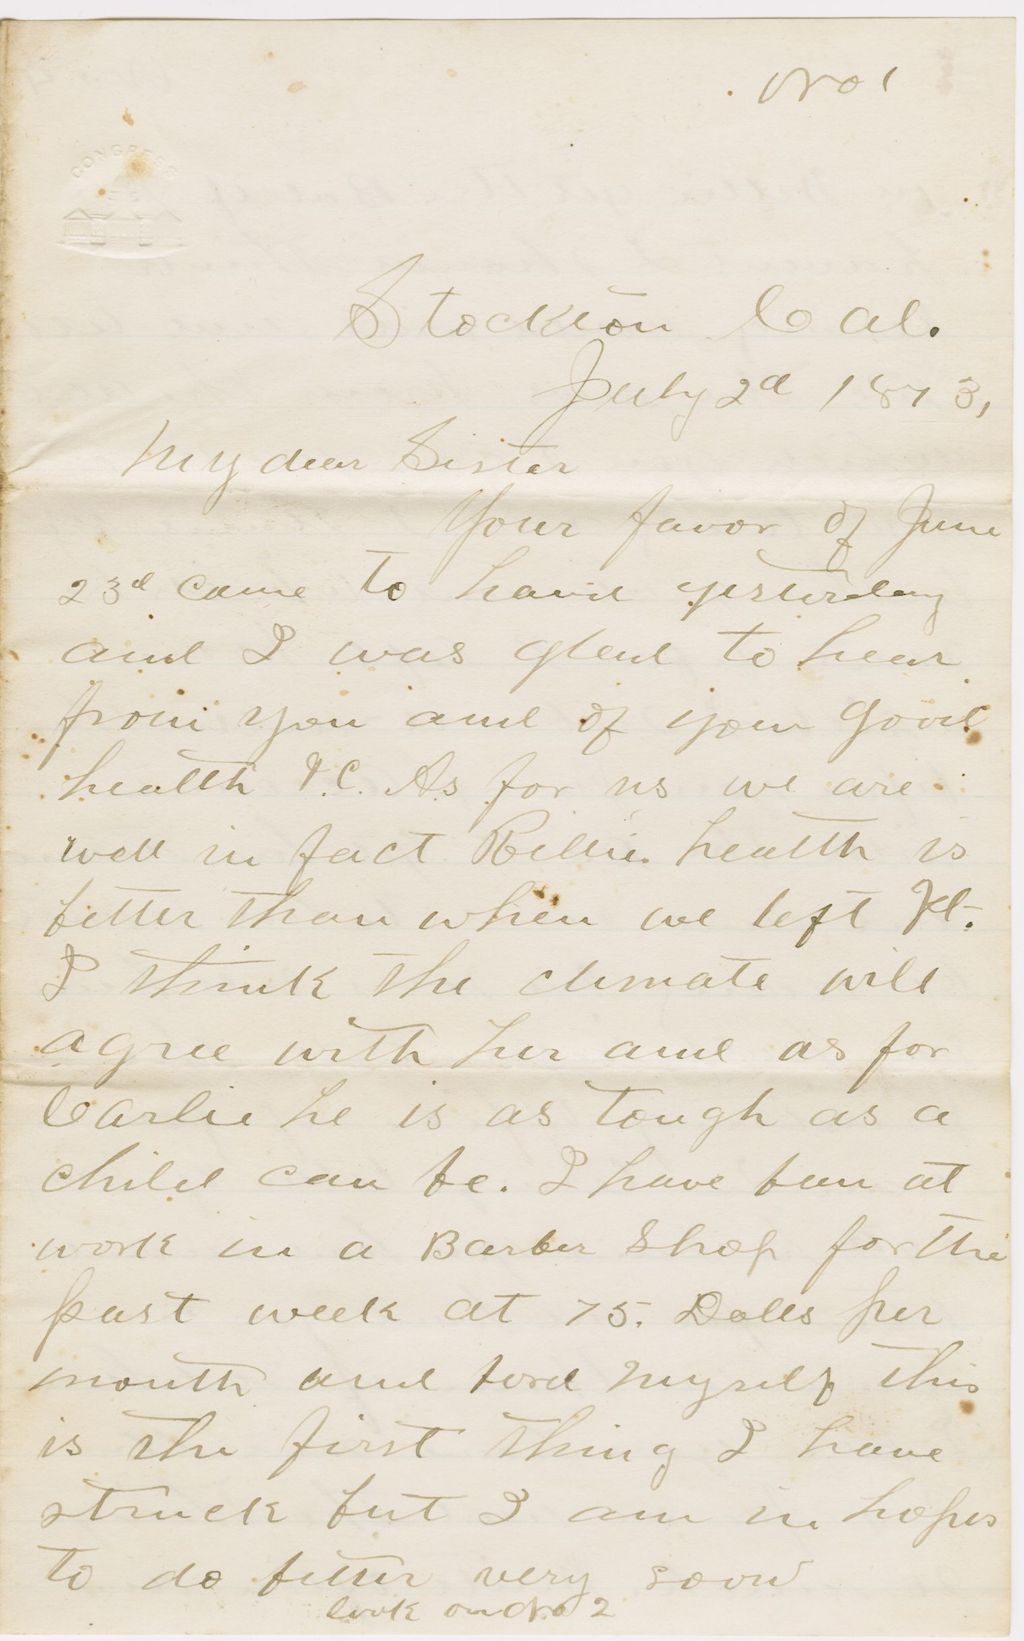 No 1
CONGRESS
Stockton Cal.
July 2d 1873,
My dear Sister
Your favor of June
23d came to hand yesterday
and I was glad to hear
from you and of your good
health &C. As for us we are
well in fact health is
better than when we left
I think the climate will
agree with her and as for
Carlie he is as tough as a
child can be. I have ben at
work in a Barber Shop for the
past week at 75. Dolls per
month and bord myself this
is the first thing I have
struck but I am in hopes
to do better very soon
look on No 2